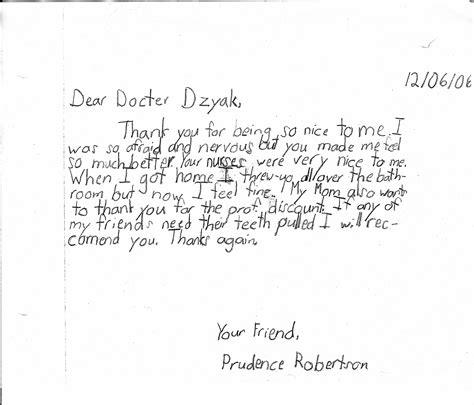 12/06/06
Dear Docter Dzyak,
Thank you for being so nice to me. I
was so afraid and nervous but you made me feel
so much better. Your nurses were very nice to me.
When I got home I threw-up all over the bath-
room but now I feel fine. My Mom also wants
to thank you for the prof. discount. If any of
my friends need their teeth pulled I will rec-
comend you. Thanks again,
Your Friend,
Prudence Robertson